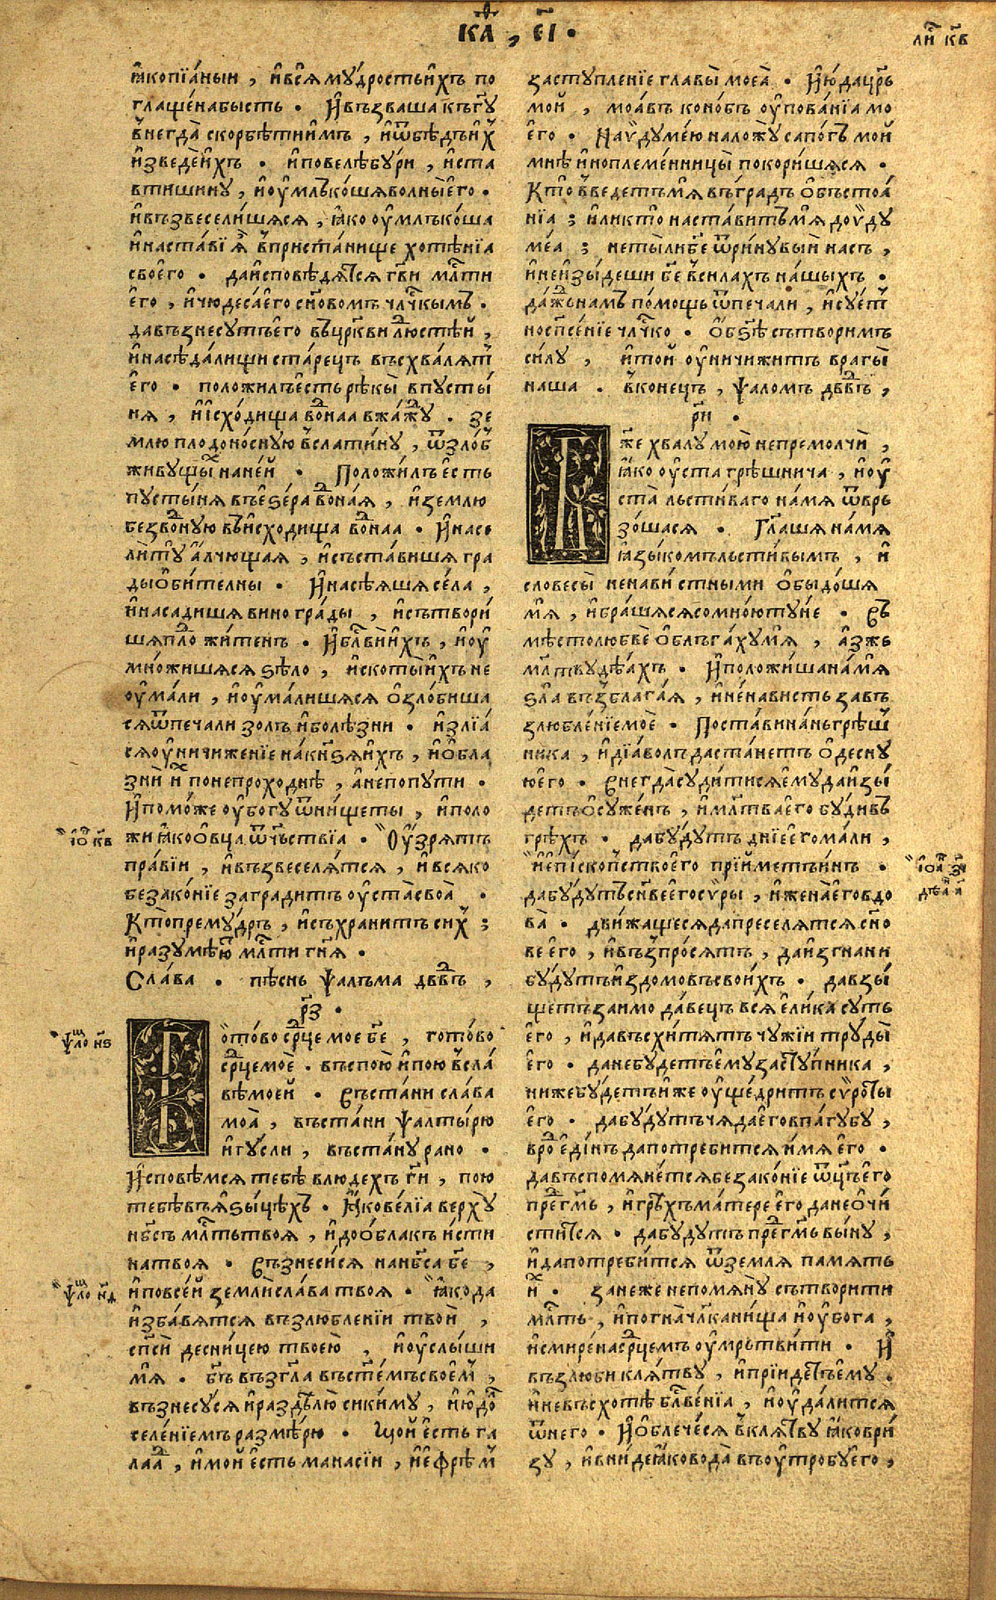 каѳ, єі ·
ли кв
ꙗ҆копїа́ныи , и҆всѧ мꙋ́дростьи҆́хъ по
глаще́на бысть · И҆възваша къгꙋ
внегда̀ скорбѣ́тиим̾ъ , и҆ѿбѣ́дъи҆х
и҆зведеи҆́хъ · и҆повелѣ́бꙋ́ри , и҆ста
втишинꙋ , и҆ꙋ҆млъко́шѧ волны̀є҆го ·
и҆възвесели́шѧсѧ , ꙗ҆́ко ꙋ҆млъко́ша
и҆наста́ви ѧ҆̀ вприста́нище хотѣ́нїа
своє҆го̀ · даи҆сповѣ́дѧтсѧ гв҃и мл҃ти
є҆го , и҆чюдеса̀є҆го сн҃овомъ чл҃чкымъ ·
давъзнесꙋ́тъє҆го въцр҃кви лю́дстѣй ,
и҆насѣда́лищи ста́рецъ въсхва́лѧт
є҆го · положилъ є҆́сть рѣкы̀ впꙋсты́
нѧ , и҆и҆схо́дища во́днаа вжа́ждꙋ · зе
млю плодоно́снꙋю всла́тинꙋ , ѿзло́б
живꙋщы́х на не́й · Положи́лъ є҆́сть
пꙋсты́нѧ въє҆зе́ра во́днаѧ , и҆зе́млю
безво́днꙋю въи҆схо́дища во́днаа · И҆насе
лѝтꙋ а҆́лчющаѧ , и҆съста́вишѧ гра
ды ѻ҆би́телны · И҆насѣ́ѧшѧ се́ла ,
и҆насади́шѧ виногра́ды , и҆сътвори́
шѧ пло́д жи́тенъ · И҆бл҃вѝи҆́хъ , и҆ꙋ҆
мно́жишѧсѧ ѕѣло , и҆скоты̀и҆хъ не
ꙋ҆мали , и҆ꙋ҆ма́лишѧсѧ ѻ҆зло́бишѧ
сѧ ѿпеча́ли золъ и҆болѣзни · и҆злїа́
сѧ ꙋ҆ничиже́нїе на кн҃ѕѧи҆́хъ , и҆ѻ҆бла
знѝ и҆́х понепрохо́днѣ , а҆непопꙋти ·
И҆помо́же ꙋ҆бо́гꙋ ѿнищеты̀ , и҆поло
жи ꙗ҆́ко ѻ҆вца ѿч҃ьствїа · ꙋ҆́зрѧтъ
пра́вїи , и҆възвеселѧ́тсѧ , и҆всѧ́ко
безако́нїе заградитъ ꙋ҆ста̀своѧ̀ ·
Кто̀ премꙋ́дръ , и҆съхрани́тъ си́х ;
и҆разꙋмѣ́ют мл҃ти гн҃ѧ ·
Сла́ва · пѣснь ѱалъма дв҃въ ,
рз ·
ѱало нѕ
ото́во ср҃це мое бе , гото́во
ср҃цемоѐ · въспою̀ и҆пою̀ всла́
вѣмоей · Въста́ни сла́ва
моа̀ , въста́ни ѱалты́рю
и҆гꙋ́сли , въста́нꙋ ра́но ·
И҆сповѣмсѧ тебѣ влю́дехъ гн҃и , пою
тебѣ въꙗ҆зы́цѣхъ · Ꙗ҆́ковелїа ве́рхꙋ
нб҃съ мл҃ть твоѧ , и҆до ѻ҆́блакъ и҆сти
на твоѧ · Възнеси́сѧ нанб҃са бе ,
ѱало нд
и҆повсе́й землѝ сла́ва твоѧ · ꙗ҆́ко да
и҆зба́вѧтсѧ възлю́бленїи твои̇ ,
сп҃сѝ десни́цею твое́ю , и҆ꙋ҆слы́ши
мѧ · бг҃ъ възгла въст҃е́мъ своє҆м ,
възнесꙋ́сѧ и҆раздѣлю сикимꙋ , и҆ю҆до́л
селе́нїемъ разме́рю · Мой є҆́сть га
лаа́д , и҆мой є҆́сть манаси́и , и҆є҆фре́м
застꙋпле́нїе главы̀ моеа̀ · И҆ю҆да цр҃ь
мой , моа́въ коно́бъ ꙋ҆пова́нїа мо
є҆го · На и҆дꙋме́ю наложꙋ̀ сапо́гъ мой
мнѣ и҆ноплеме́нницы покори́шѧсѧ ·
Кто̀ введетъ мѧ въгра́дъ ѻ҆бъстоа́
нїа ; и҆ликто̀ наста́витъ мѧ доидꙋ
ме́а ; не ты̀ ли бе ѿри́нꙋвый насъ ,
и҆неи҆зы́деши бе всилахъ на́шыхъ ·
да́ждьнамъ по́мощь ѿпеча́ли , и҆сꙋ́ет
но сп҃се́нїе чл҃чко · Ѻ҆бз҃ѣ сътвори́мъ
си́лꙋ , и҆то́й ꙋ҆ничижи́тъ врагы̀
наша · вконецъ , ѱало́мъ дв҃въ ,
ри ·
же хвалꙋ̀ мою̀ непремолчѝ ,
ꙗ҆́ко ꙋ҆ста̀ грѣ́шнича , и҆ꙋ҆
ста̀ льсти́ваго на́ мѧ ѿвръ
зо́шасѧ · Гл҃ашѧ на́ мѧ
ꙗ҆зы́комъ льсти́вымъ , и҆
словесы̀ нена́вистными ѻ҆быдо́шѧ
мѧ , и҆бра́шѧсѧ сомно́ютꙋ́не · Въ
мѣ́сто любвѐ ѻ҆блъга́хꙋ мѧ , а҆́зже
мл҃твꙋ дѣ́ахъ · И҆положи́ша на́ мѧ
ѕла въз благаѧ , и҆не́нависть завъ
злюбле́нїе моѐ · Поста́ви на́нь грѣ́ш
ника , и҆дїа́волъ да ста́нетъ ѻ҆деснꙋ
ю є҆го · Внегда̀ сꙋди́тисѧ є҆мꙋ̀ да и҆зы́
детъ ѻ҆сꙋже́нъ , и҆мл҃тва є҆го бꙋ́ди въ
грѣхъ · да бꙋ́дꙋтъ днїе є҆го ма́ли ,
и҆є҆пи́скопство є҆го прїи́метъ и҆нъ ·
да бꙋ́дꙋтъ сн҃ве є҆го си́ры , и҆жена є҆го вдо
ва̀ · дви́жащесѧ да пресе́лѧтсѧ сн҃о
ве є҆го , и҆възпро́сѧтъ , да и҆згнани
бꙋ́дꙋтъ и҆здомо́въ своих · да взы́
щетъ заимода́вецъ всѧ є҆ли́ка сꙋть
є҆го , и҆да въсхи́тѧтъ чю́жїи трꙋды̀
є҆го · да небꙋ́детъ є҆мꙋ застꙋ́пника ,
ниже бꙋ́детъ и҆же ꙋ҆ще́дритъ сироты
є҆го · да бꙋ́дꙋтъ чѧ́да є҆го впа́гꙋбꙋ ,
вро́д є҆ди́нъ да потреби́тсѧ и҆́мѧ є҆го ·
да въспомѧне́тсѧ безако́нїе ѿц҃ъ є҆го
пре́д гм҃ь , и҆грѣ́хъ ма́тере є҆го да не ѻ҆чи́
ститсѧ · да бꙋ́дꙋтъ пре́д гм҃ь вы́нꙋ ,
и҆да потреби́тсѧ ѿ землѧ па́мѧть
и҆́х · зане́же непомѧнꙋ̀ сътвори́ти
мл҃ть , и҆погна̀ чл҃ка ни́ща и҆ ꙋ҆бо́га ,
и҆смире́на ср҃цемъ ꙋ҆мръ́твити · И҆
възлюби клѧ́твꙋ , и҆прїи́детъ є҆мꙋ ·
и҆невъсхотѣ бл҃ве́нїа , и҆ꙋ҆дали́тсѧ
ѿ него · И҆ѻ҆блече́сѧ вклѧ́твꙋ ꙗ҆́коври́
зꙋ , и҆вни́де ꙗ҆́ко вода̀ въ ꙋ҆тро́бꙋ є҆го ,